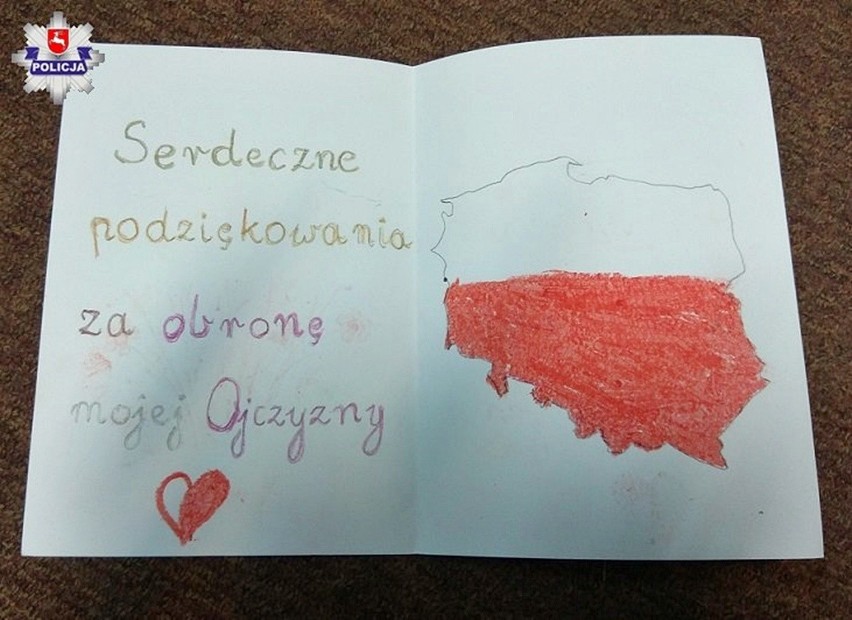 POLICJA
Serdeczne
podziękowania
za obronę
mojej Ojczyzny